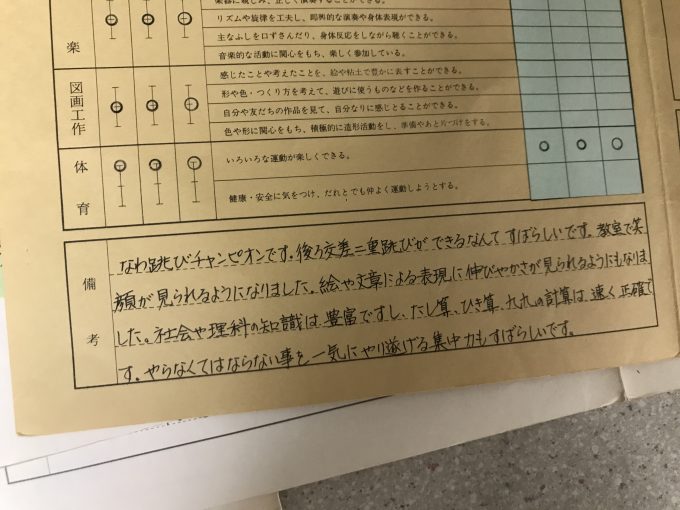 楽
リズムや旋律を工夫し、即興的な演奏や身体表現ができる。
主なふしを口ずさんだり、身体反応をしながら聴くことができる。
音楽的な活動に関心をもち、楽しく参加している。
図画工作
感じたことや考えたことを、絵や粘土で豊かに表すことができる。
形や色・つくり方を考えて、遊びに使うものなどを作ることができる。
自分や友だちの作品を見て、自分なりに感じとることができる。
色や形に関心をもち、積極的に造形活動をし、準備やあと片づけをする。
体育
いろいろな運動が楽しくできる。
健康・安全に気をつけ、だれとでも仲よく運動しようとする。
備考
なわ跳びチャンピオンです。後ろ交差二重跳びができるなんてすばらしいです。教室で笑
顔が見られるようになりました。絵や文章による表現に伸びやかさが見られるようにもなりま
した。社会や理科の知識は豊富ですし、たし算、ひき算、九九の計算は、速く正確で
す。やらなくてはならない事を一気にやり遂げる集中力もすばらしいです。